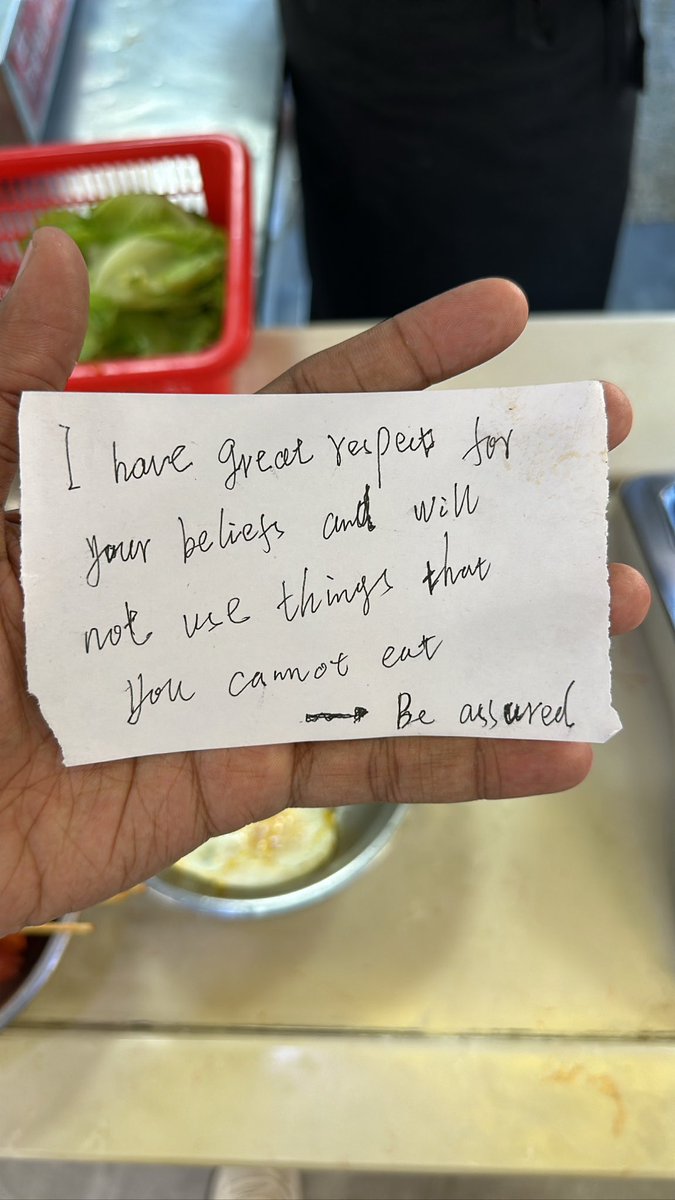 I have great respect for
your beliefs and will
not use things that
you cannot eat
→ Be assured